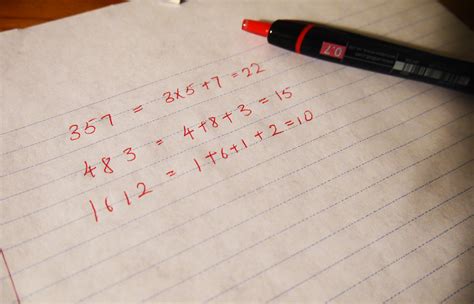 0.7
357 = 3×5+7=22
483 = 4+8+3=15
1612 = 1+6+1+2=10